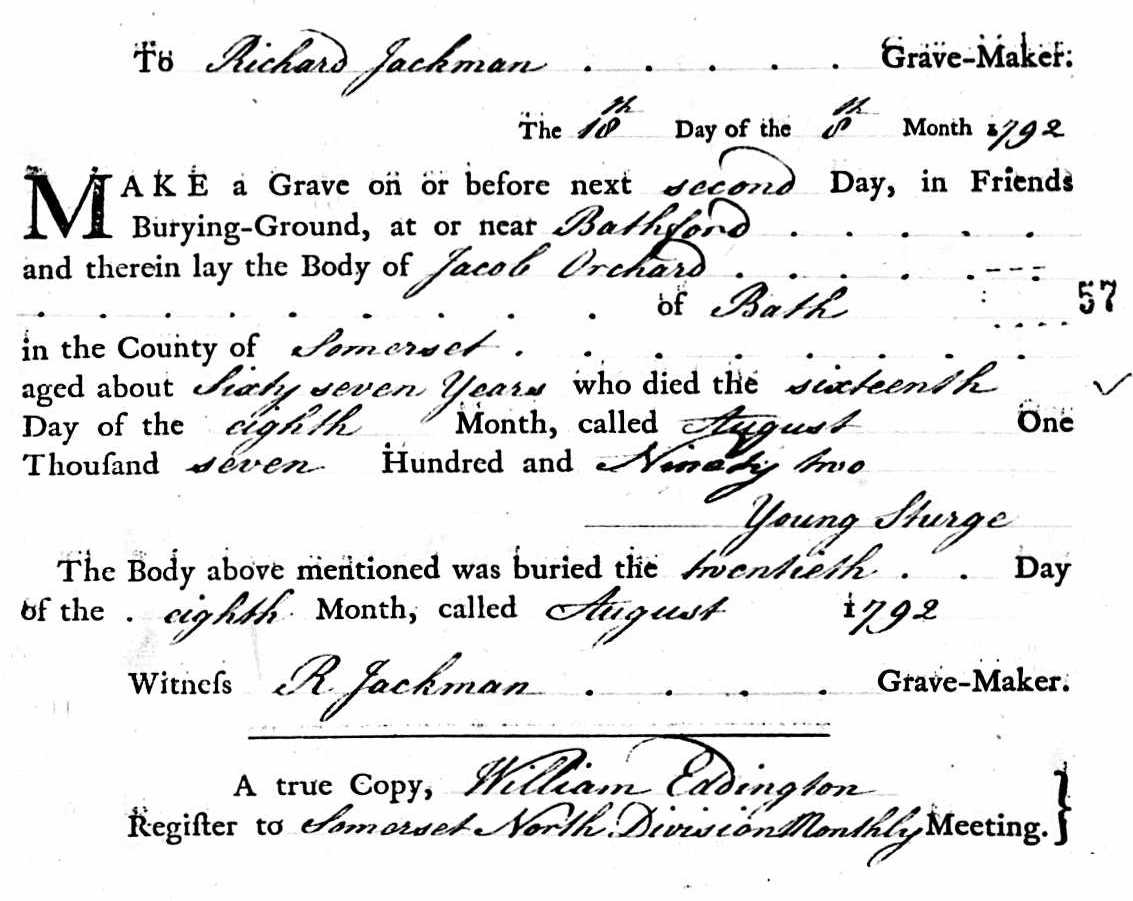 To Richard Jackman . . . . . Grave-Maker:
The 18th Day of the 8th Month 1792
MAKE a Grave on or before next second Day, in Friends
Burying-Ground, at or near Bathford . . . . .
and therein lay the Body of Jacob Orchard . . . . .
. . . . . . . . . of Bath 57
in the County of Somerset . . . . . . . .
aged about Sixty seven Years who died the sixteenth ✓
Day of the eighth Month, called August One
Thouſand seven Hundred and Ninety two
Young Sturge
The Body above mentioned was buried the twentieth . . Day
of the . eighth Month, called August 1792
Witneſs R Jackman . . . . Grave-Maker.
A true Copy, William Eddington
Regiſter to Somerset North Division Monthly Meeting. }